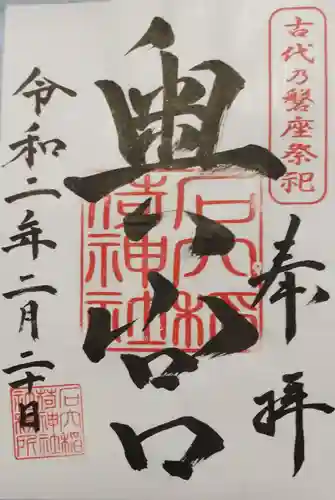 古代乃磐座祭祀
奉拝
石穴稲
荷神社
令和二年二月二十日
石穴稲
荷神社
社務所